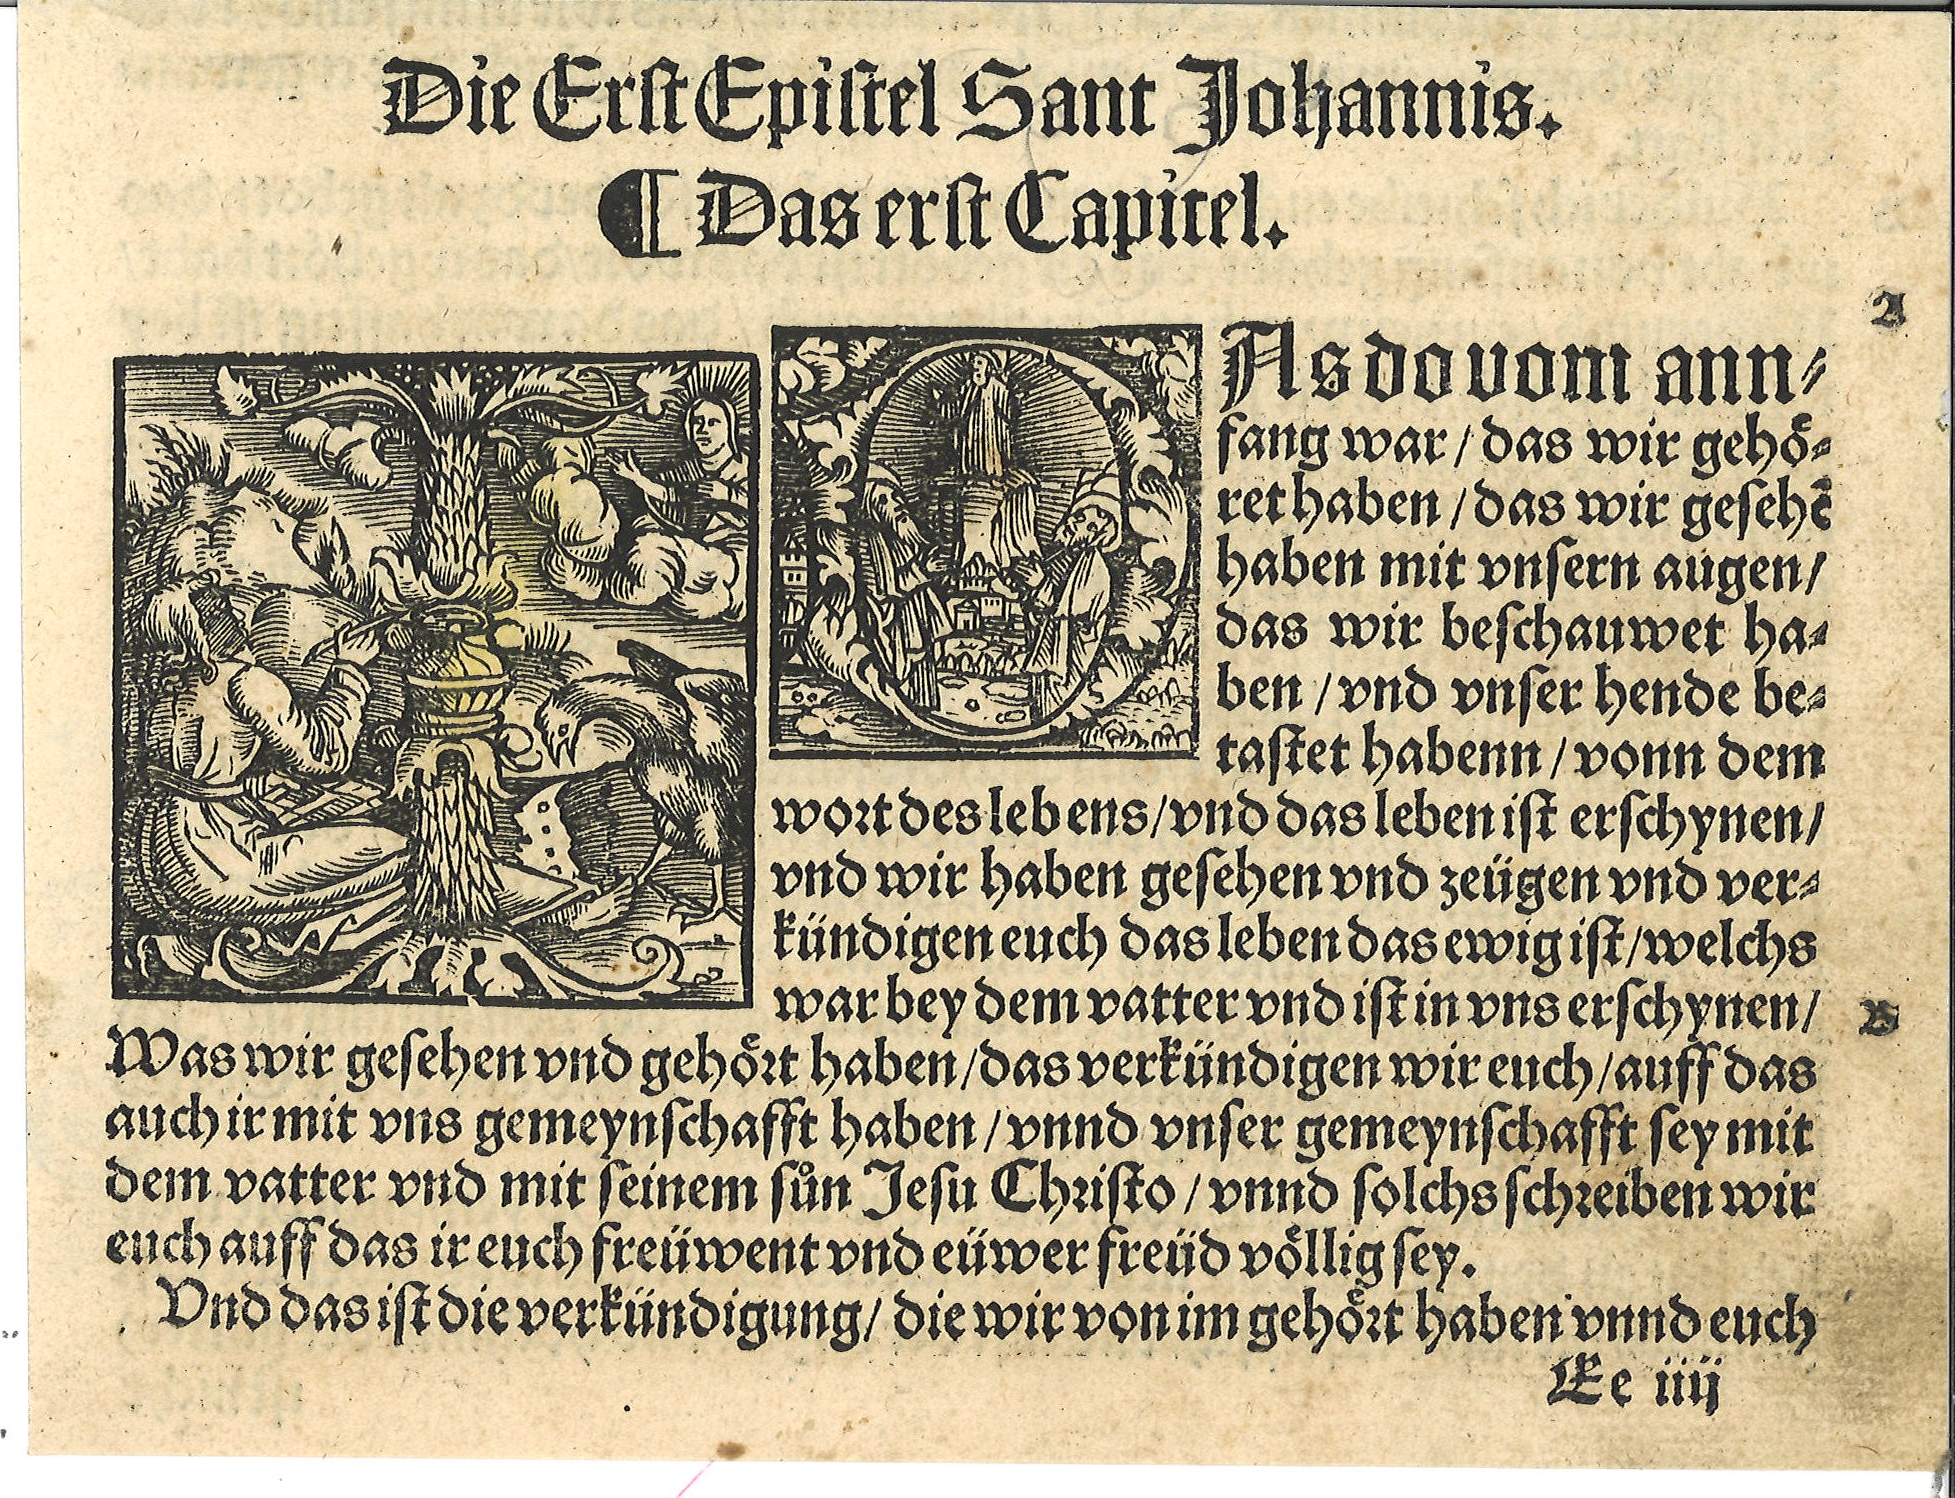 Die Erst Epistel Sant Johannis.
¶ Das erst Capitel.
A
DAs do vom ann⸗
fang war / das wir gehoͤ⸗
ret haben / das wir gesehē
haben mit vnsern augen /
das wir beschauwet ha⸗
ben / vnd vnser hende be⸗
tastet habenn / vonn dem
wort des lebens / vnd das leben ist erschynen /
vnd wir haben gesehen vnd zeügen vnd ver⸗
kündigen euch das leben das ewig ist / welchs
war bey dem vatter vnd ist in vns erschynen /
B
Was wir gesehen vnd gehoͤrt haben / das verkündigen wir euch / auff das
auch ir mit vns gemeynschafft haben / vnnd vnser gemeynschafft sey mit
dem vatter vnd mit seinem sůn Jesu Christo / vnnd solchs schreiben wir
euch auff das ir euch freüwent vnd eüwer freüd voͤllig sey.
Vnd das ist die verkündigung / die wir von im gehoͤrt haben vnnd euch
Ee iiij